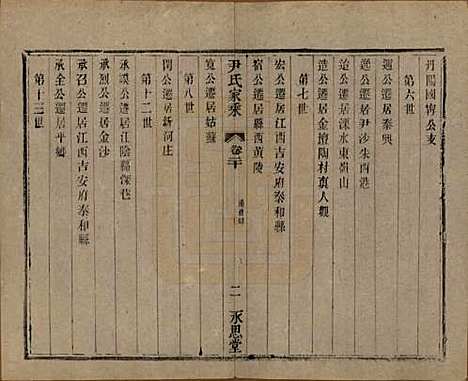 丹陽國甯公支
第六世
週公遷居泰興
迯公遷居尹沙朱西港
迨公遷居溧水東嶺山
造公遷居金壇陶村眞人觀
第七世
宏公遷居江西吉安府泰和縣
宿公遷居縣西黃陵
尹氏家乘
卷二十
二
永思堂
寬公遷居姑蘇
第八世
閏公遷居新河庄
第十二世
承謨公遷居江陰楊深巷
承烈公遷居金沙
承召公遷居江西吉安府泰和縣
承全公遷居平鄉
第十三世